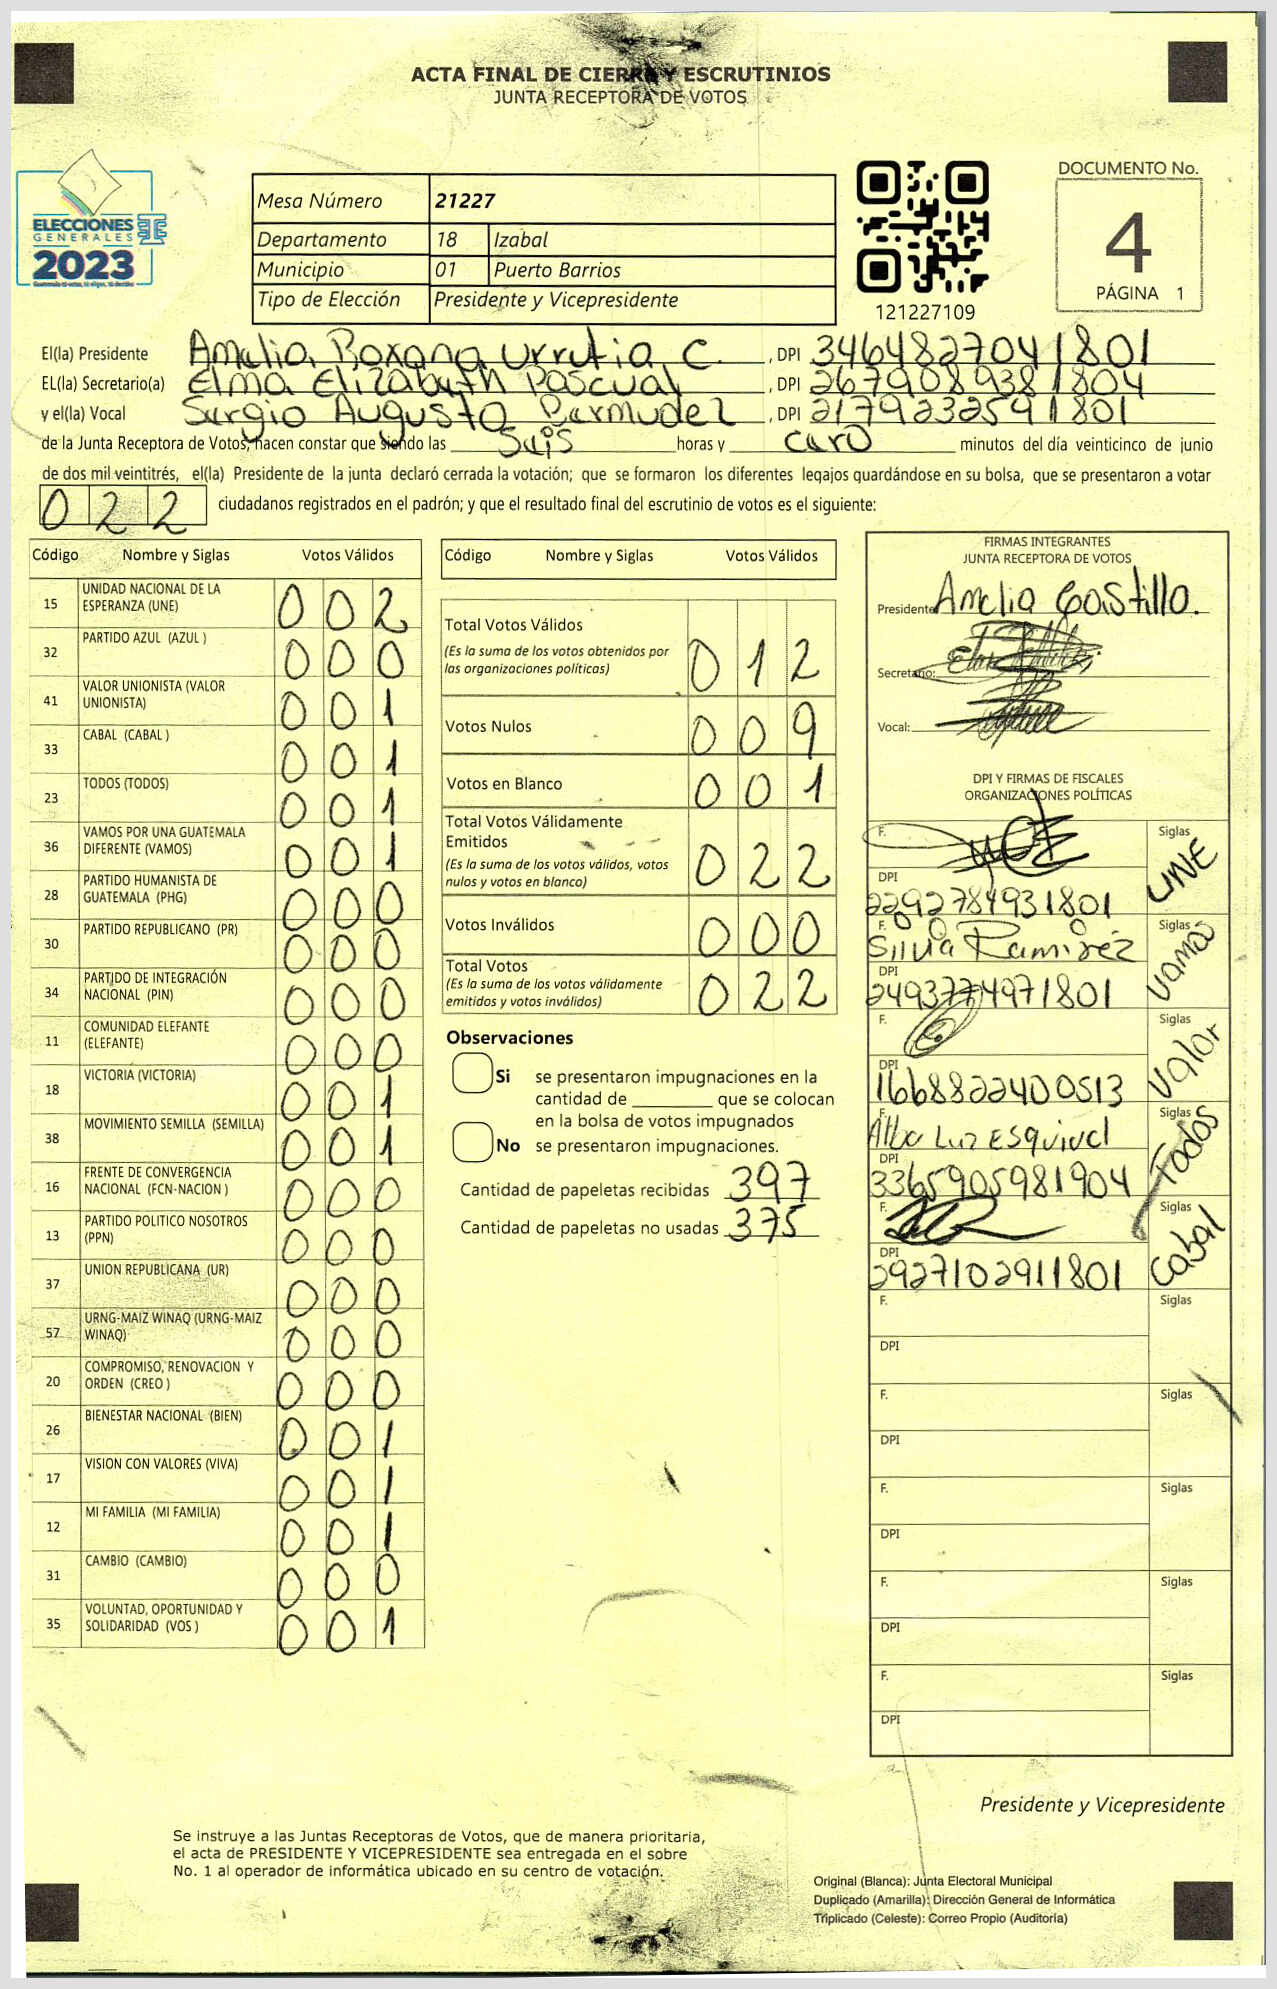 ACTA FINAL DE CIERRE Y ESCRUTINIOS
JUNTA RECEPTORA DE VOTOS
ELECCIONES
GENERALES
2023
Mesa Número 21227
Departamento 18 Izabal
Municipio 01 Puerto Barrios
Tipo de Elección Presidente y Vicepresidente
121227109
DOCUMENTO No.
4
PÁGINA 1
El(la) Presidente Amelia Roxana Urrutia C. , DPI 3464827041801
EL(la) Secretario(a) Elma Elizabeth Pascual , DPI 2679089381804
y el(la) Vocal Sergio Augusto Bermudez , DPI 2179232591801
de la Junta Receptora de Votos, hacen constar que siendo las Seis horas y cero minutos del día veinticinco de junio
de dos mil veintitrés, el(la) Presidente de la junta declaró cerrada la votación; que se formaron los diferentes legajos guardándose en su bolsa, que se presentaron a votar
022 ciudadanos registrados en el padrón; y que el resultado final del escrutinio de votos es el siguiente:
Código Nombre y Siglas Votos Válidos
15 UNIDAD NACIONAL DE LA ESPERANZA (UNE) 002
32 PARTIDO AZUL (AZUL ) 000
41 VALOR UNIONISTA (VALOR UNIONISTA) 001
33 CABAL (CABAL ) 001
23 TODOS (TODOS) 001
36 VAMOS POR UNA GUATEMALA DIFERENTE (VAMOS) 001
28 PARTIDO HUMANISTA DE GUATEMALA (PHG) 000
30 PARTIDO REPUBLICANO (PR) 000
34 PARTIDO DE INTEGRACIÓN NACIONAL (PIN) 000
11 COMUNIDAD ELEFANTE (ELEFANTE) 000
18 VICTORIA (VICTORIA) 001
38 MOVIMIENTO SEMILLA (SEMILLA) 001
16 FRENTE DE CONVERGENCIA NACIONAL (FCN-NACION ) 000
13 PARTIDO POLITICO NOSOTROS (PPN) 000
37 UNION REPUBLICANA (UR) 000
57 URNG-MAIZ WINAQ (URNG-MAIZ WINAQ) 000
20 COMPROMISO, RENOVACION Y ORDEN (CREO ) 000
26 BIENESTAR NACIONAL (BIEN) 001
17 VISION CON VALORES (VIVA) 001
12 MI FAMILIA (MI FAMILIA) 001
31 CAMBIO (CAMBIO) 000
35 VOLUNTAD, OPORTUNIDAD Y SOLIDARIDAD (VOS ) 001
Código Nombre y Siglas Votos Válidos
Total Votos Válidos 012
(Es la suma de los votos obtenidos por
las organizaciones políticas)
Votos Nulos 009
Votos en Blanco 001
Total Votos Válidamente
Emitidos 022
(Es la suma de los votos válidos, votos
nulos y votos en blanco)
Votos Inválidos 000
Total Votos 022
(Es la suma de los votos válidamente
emitidos y votos inválidos)
Observaciones
Si se presentaron impugnaciones en la
cantidad de ________ que se colocan
en la bolsa de votos impugnados
No se presentaron impugnaciones.
Cantidad de papeletas recibidas 397
Cantidad de papeletas no usadas 375
FIRMAS INTEGRANTES
JUNTA RECEPTORA DE VOTOS
Presidente Amelia Castillo.
Secretario:
Vocal:
DPI Y FIRMAS DE FISCALES
ORGANIZACIONES POLÍTICAS
F. Siglas UNE
DPI 2292784931801
F. Silvia Ramirez Siglas Vamos
DPI 2493774971801
F. Siglas Valor
DPI 1668822400513
F. Alba Luz Esquivel Siglas Todos
DPI 3365905981904
F. Siglas Cabal
DPI 2927102911801
F. Siglas
DPI
F. Siglas
DPI
F. Siglas
DPI
F. Siglas
DPI
F. Siglas
DPI
Presidente y Vicepresidente
Se instruye a las Juntas Receptoras de Votos, que de manera prioritaria,
el acta de PRESIDENTE Y VICEPRESIDENTE sea entregada en el sobre
No. 1 al operador de informática ubicado en su centro de votación.
Original (Blanca): Junta Electoral Municipal
Duplicado (Amarilla): Dirección General de Informática
Triplicado (Celeste): Correo Propio (Auditoría)